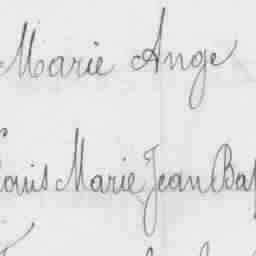 Marie Ange
Louis Marie Jean Bap